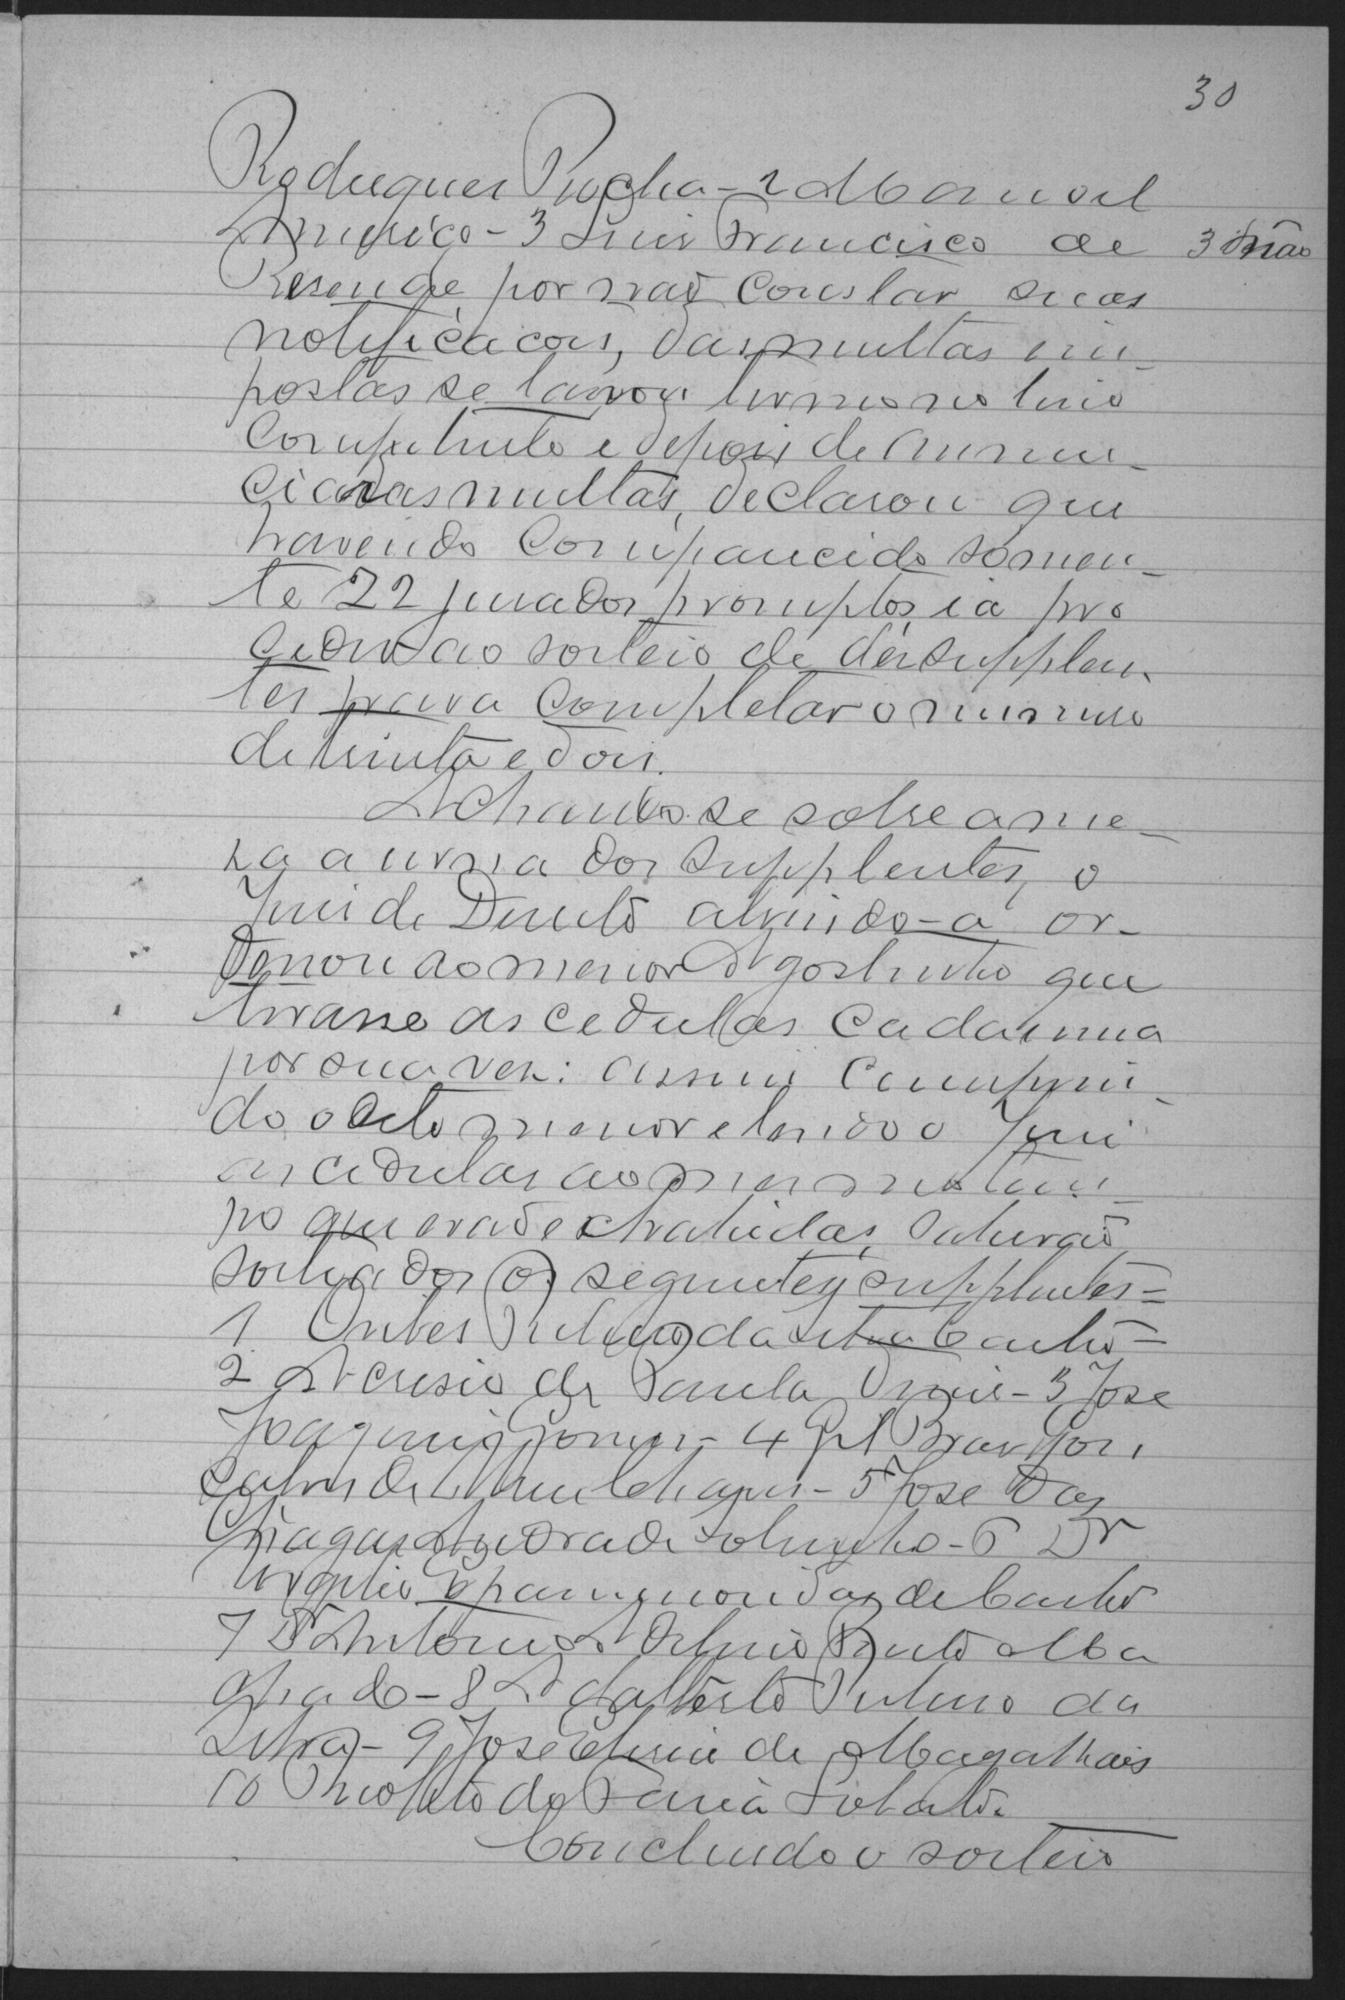 30
Rodrigues Rocha - 2 Manoel
Americo - 3 Luis Francisco de
Resende por não constar suas
notificacois, das multas im-
postas se lavrou termo no livro
Competente e depois de annun-
ciadas multas, declarou que
havendo Comparecido somen-
te 22 jurados promptos, ia pro
ceder ao sorteio de des supplen-
tes para completar o numero
de trinta e dois.
Achando-se sobre a me-
za a urna dos supplentes, o
Juis de Direito abrindo-a or-
denou ao menor Agostinho que
tirasse as cedulas cada uma
por sua vez: assim Cumpri-
do o dito menor e lendo o Juis
as cedulas ao mesmo tem-
po que erão extrahidas, sahirão
sorteados os seguintes supplentes =
1 da Silva Castro =
2 de Paula - 3 José
Joaquim Gomes - 4 Bras Gon
calves - 5 José das
Chagas Andrade Sobrinho - 6 Dr
Virgilio Epaminondas de Castro
7 Dr Antonio Pinto Ma
chado - 8 Adalberto da
Silva - 9 José de Magalhais
10 Theophilo de Faria Lobato.
Concluido o sorteio